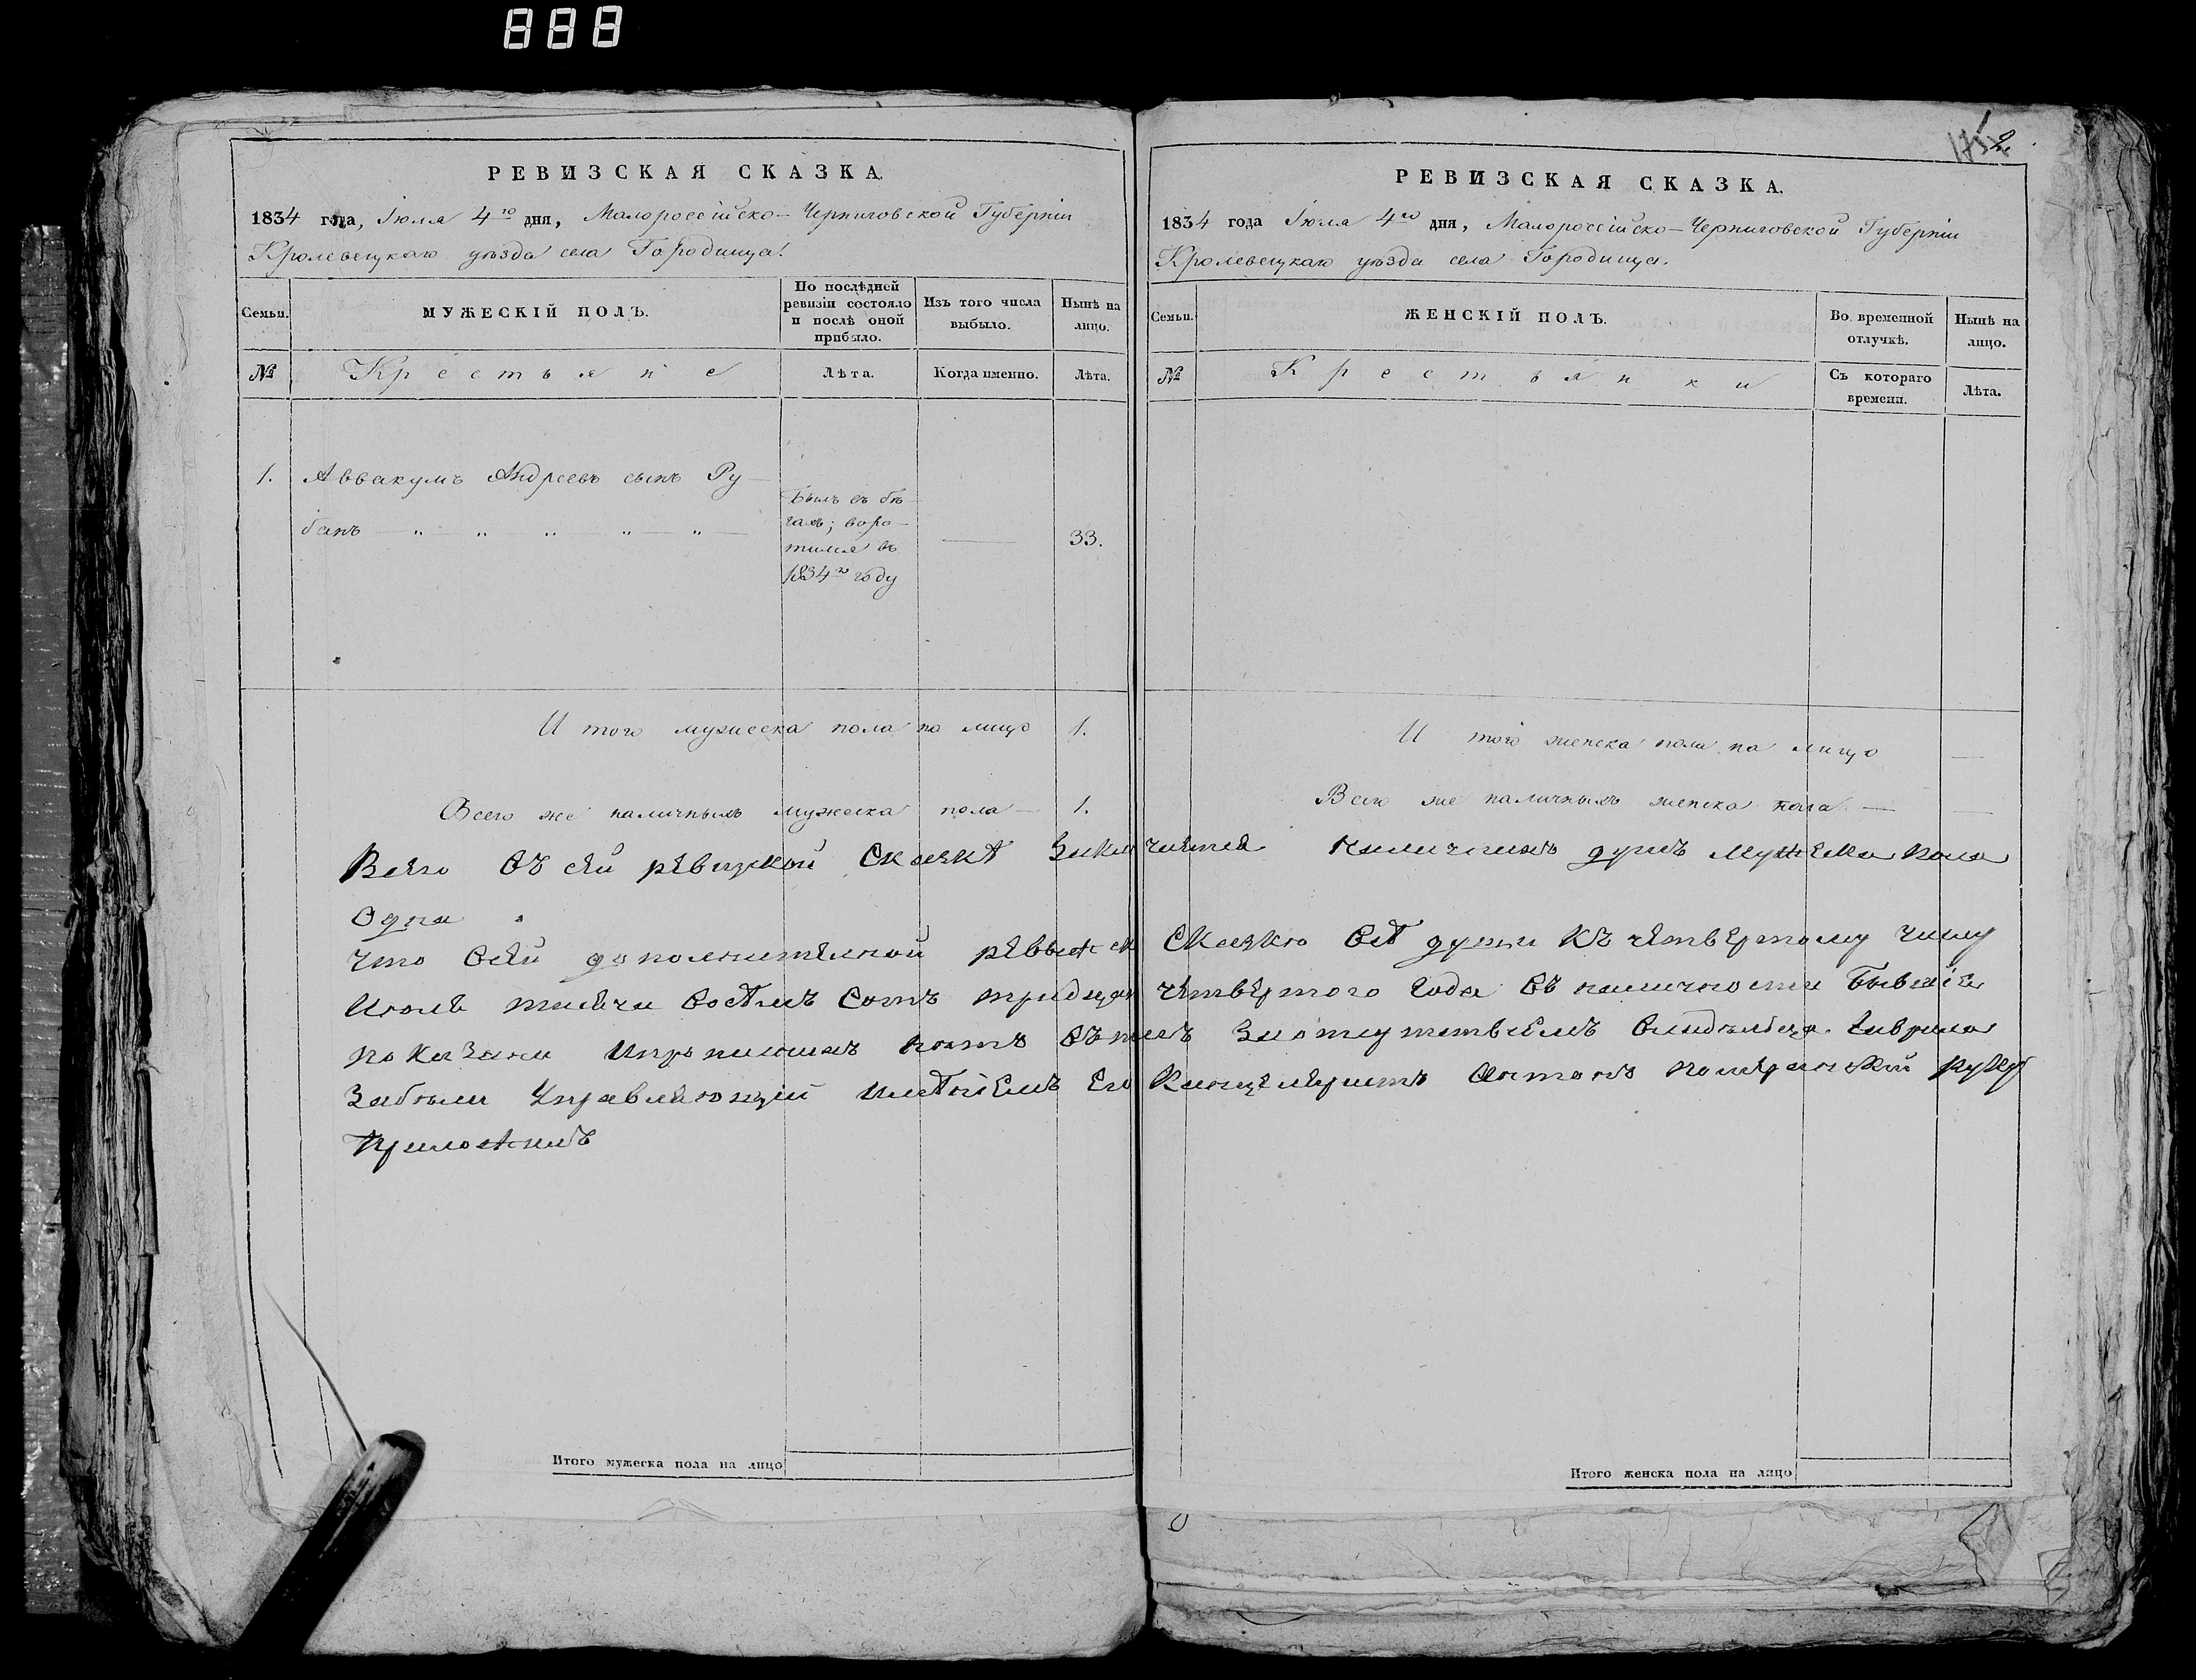 888
1752
РЕВИЗСКАЯ СКАЗКА.
1834 года, Іюля 4го дня, Малороссійско-Черниговской Губерніи
Кролевецкаго уѣзда села Городища.
Семьи.
МУЖЕСКІЙ ПОЛЪ.
По послѣдней
ревизіи состояло
и послѣ оной
прибыло.
Изъ того числа
выбыло.
Нынѣ на
лицо.
№
Крестьяне
Лѣта.
Когда именно.
Лѣта.
1.
Аввакумъ Андреевъ сынъ Ру-
банъ — " — " — " — " — " —
Былъ въ бѣ-
гахъ; воро-
тился въ
1834го году
—
33.
И того мужеска пола на лицо 1.
Всего же наличныхъ мужеска пола — 1.
РЕВИЗСКАЯ СКАЗКА.
1834 года Іюля 4го дня, Малороссійско-Черниговской Губерніи
Кролевецкаго уѣзда села Городища.
Семьи.
ЖЕНСКІЙ ПОЛЪ.
Во временной
отлучкѣ.
Нынѣ на
лицо.
№
Крестьянки
Съ котораго
времени.
Лѣта.
И того женска пола на лицо —
Всего же наличныхъ женска пола — —
Всего въ сей ревизкой Сказкѣ наличныхъ душъ мужеска пола
Одна
что всей дополнительной Сказкю всѣ души къ четвертому числу
Июля тисечи восѣмъ сотъ четвертого года въ наличности бывшіе
показани Гаврила
Забѣли Управляющій имѣніемъ Его Канцеляристъ Антонъ руку
Приложилъ
Итого мужеска пола на лицо
Итого женска пола на лицо